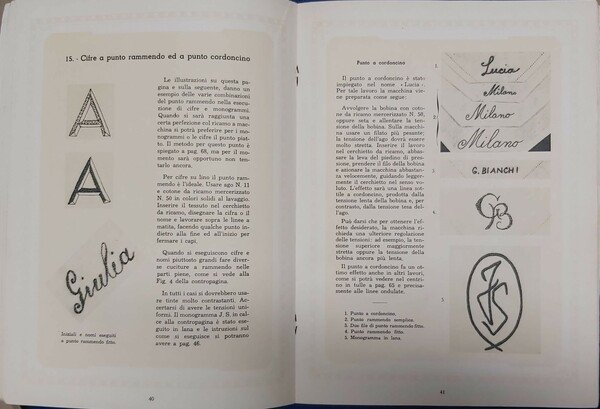 15. - Cifre a punto rammendo ed a punto cordoncino
A
A
Giulia
Iniziali e nomi eseguiti
a punto rammendo fitto.
Le illustrazioni su questa pa-
gina e sulla seguente, danno un
esempio delle varie combinazioni
del punto rammendo nella esecu-
zione di cifre e monogrammi.
Quando si sarà raggiunta una
certa perfezione col ricamo a mac-
china si potrà preferire per i mo-
nogrammi o le cifre il punto piat-
to. Il metodo per questo punto è
spiegato a pag. 68, ma per il mo-
mento sarà opportuno non ten-
tarlo ancora.
Per cifre su lino il punto ram-
mendo è l'ideale. Usare ago N. 11
e cotone da ricamo mercerizzato
N. 50 in colori solidi al lavaggio.
Inserire il tessuto nel cerchietto
da ricamo, disegnare la cifra o il
nome e lavorare sopra le linee a
matita, facendo qualche punto in-
dietro alla fine ed all'inizio per
fermare i capi.
Quando si eseguiscono cifre e
nomi piuttosto grandi fare diver-
se cuciture a rammendo nelle
parti piene, come si vede alla
Fig. 4 della contropagina.
In tutti i casi si dovrebbero usa-
re tinte molto contrastanti. Accer-
tarsi di avere le tensioni uni-
formi. Il monogramma J. S. in cal-
ce alla contropagina è stato ese-
guito in lana e le istruzioni sul
come si eseguisce si potranno
avere a pag. 46.
40
Punto a cordoncino
Il punto a cordoncino è stato
impiegato nel nome «Lucia».
Per tale lavoro la macchina vie-
ne preparata come segue:
Avvolgere la bobina con coto-
ne da ricamo mercerizzato N. 50,
oppure seta e allentare la ten-
sione della bobina. Sulla macchi-
na usare un filato più pesante;
la tensione dell'ago dovrà essere
molto stretta. Inserire il lavoro
nel cerchietto da ricamo, abbas-
sare la leva del piedino di pres-
sione, prendere il filo della bobina
e azionare la macchina abbastan-
za velocemente, guidando legger-
mente il cerchietto nel senso vo-
luto. L'effetto sarà una linea sot-
tile a cordoncino, prodotta dalla
tensione lenta della bobina e, per
contrasto, dalla tensione tesa del-
l'ago.
Può darsi che per ottenere l'ef-
fetto desiderato, la macchina ri-
chieda una ulteriore regolazione
delle tensioni: ad esempio, la ten-
sione superiore maggiormente
stretta oppure la tensione della
bobina ancora più lenta.
Il punto a cordoncino fa un ot-
timo effetto anche in altri lavori,
come si potrà vedere nel centri-
no in tulle a pag. 65 e precisa-
mente alle linee ondulate.
1. Punto a cordoncino.
2. Punto rammendo semplice.
3. Due file di punto rammendo fitto.
4. Punto rammendo fitto.
5. Monogramma in lana.
1.
Lucia
2.
Milano
3.
Milano
Milano
G. BIANCHI
4.
GB
5.
JS
41